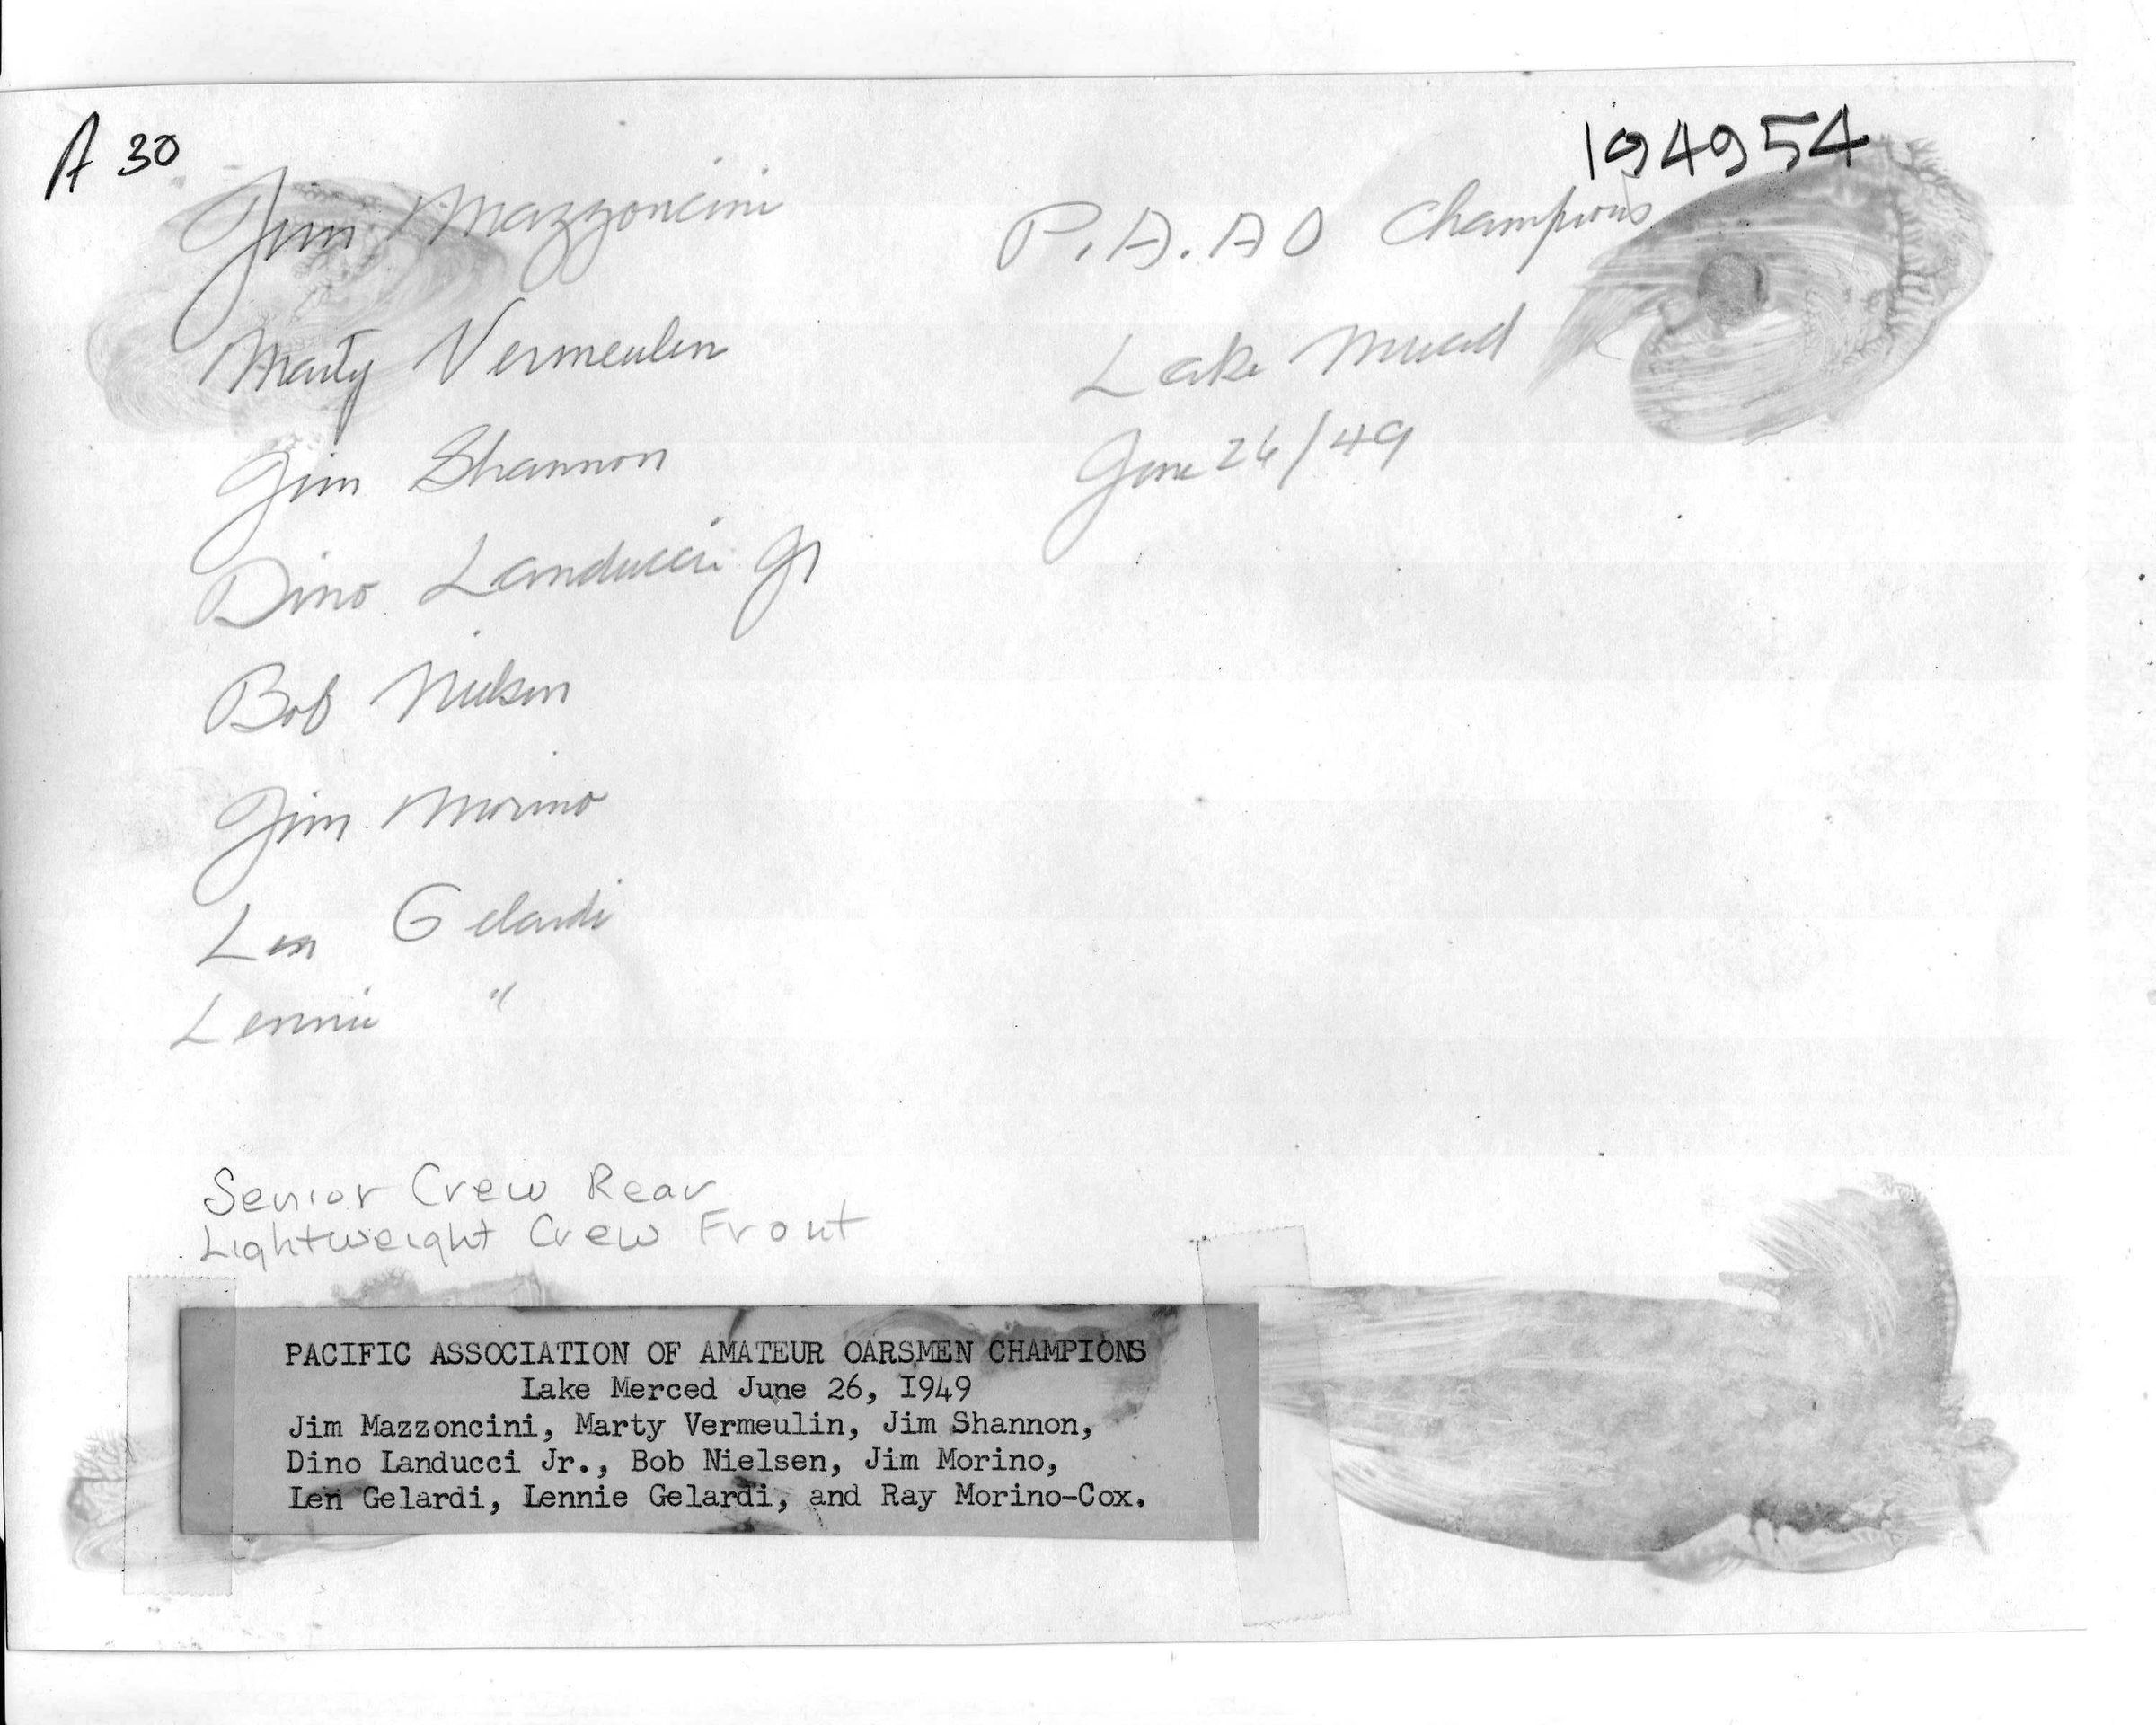 A 30
194954
Jim Mazzoncini
P.A.AO Champions
Marty Vermeulen
Lake Merced
Jim Shannon
June 26/49
Dino Landucci Jr
Bob Nielsen
Jim Morino
Len Gelardi
Lennie "
Senior Crew Rear
Lightweight Crew Front
PACIFIC ASSOCIATION OF AMATEUR OARSMEN CHAMPIONS
Lake Merced June 26, I949
Jim Mazzoncini, Marty Vermeulin, Jim Shannon,
Dino Landucci Jr., Bob Nielsen, Jim Morino,
Len Gelardi, Lennie Gelardi, and Ray Morino-Cox.